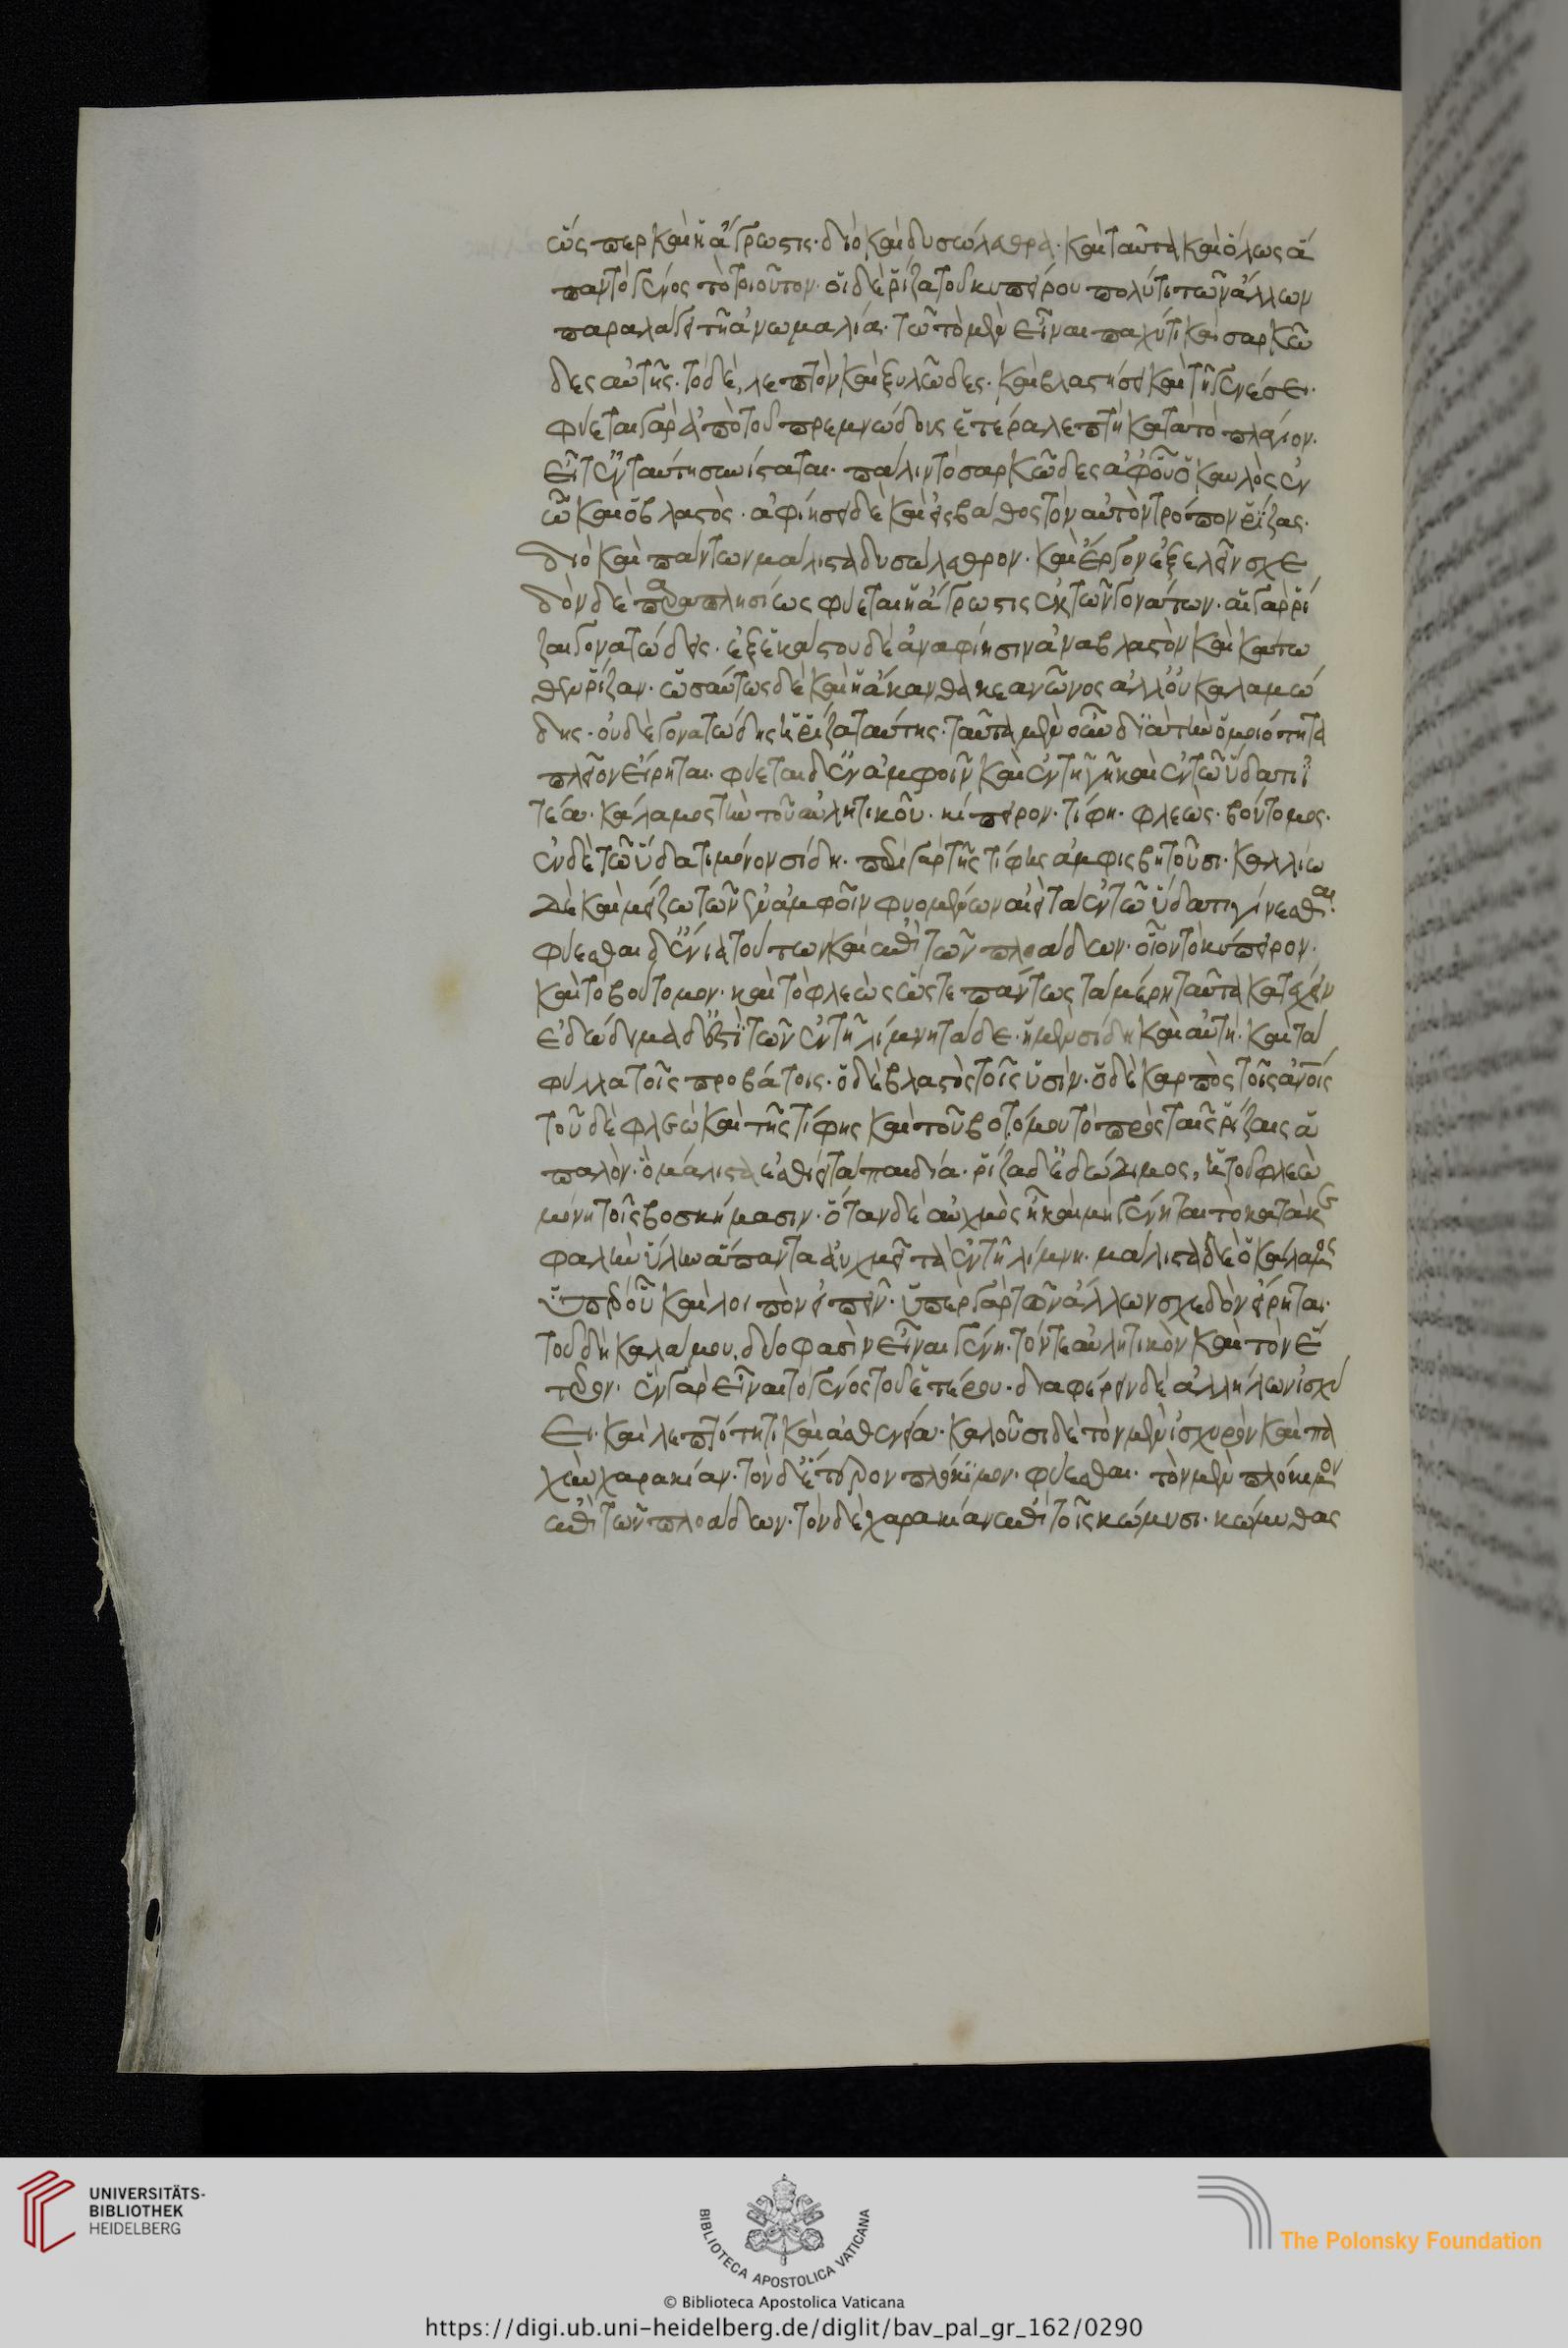 ὥσπερ καὶ ἡ ἄγρωστις· διὸ καὶ δυσώλεθρα· καὶ ταῦτα καὶ ὅλως ἅ
παν τὸ γένος τὸ τοιοῦτον· οἱ δὲ ῥίζα τοῦ κυπείρου πολύ τι τῶν ἄλλων
παραλάττει τῆ ἀνωμαλία· τῶ τὸ μὲν εἶναι παχύ τι καὶ σαρκῶ
δες αὐτῆς· τὸ δὲ, λεπτὸν καὶ ξυλῶδες· καὶ βλαστήσει καὶ τῆ γενέσει·
φύεται γὰρ ἀπὸ τοῦ πρεμνώδους ἑτέρα λεπτὴ κατὰ τὸ πλάγιον·
εἶτ' ἐν ταύτη συνίσταται· πάλιν τὸ σαρκῶδες ἀφ' οὗ ὁ καυλὸς ἐν
ὧ καὶ ὁ βλαστὸς· ἀφίησι δὲ καὶ εἰς βάθος τὸν αὐτὸν τρόπον ῥίζας·
διὸ καὶ πάντων μάλιστα δυσώλεθρον· καὶ ἔργον ἐξελεῖν σχε
δὸν δὲ παραπλησίως φύεται ἡ ἄγρωστις ἐκ τῶν γονάτων· αἱ γὰρ ῥί
ζαι γονατώδεις· ἐξ ἑκάστου δὲ ἀναφίησιν ἄνα βλαστὸν καὶ κάτω
θεν ῥίζαν· ὡσαύτως δὲ καὶ ἡ ἄκανθα κεανῶνος ἀλλ' οὐ καλαμώ
δης· οὐδὲ γονατώδης ἡ ῥίζα ταύτης· ταῦτα μὲν οὖν διὰ τὴν ὁμοιότητα
πλεῖον εἴρηται· φύεται δ' ἐν ἀμφοῖν καὶ ἐν τῆ γῆ καὶ ἐν τῶ ὕδατι ἰ
τέα· κάλαμος πλὴν τοῦ αὐλητικοῦ· κύπειρον· τίφη· φλεὼς· βούτομος·
ἐν δὲ τῶ ὕδατι μόνον σίδη· περὶ γὰρ τῆς τίφης ἀμφισβητοῦσι· καλλίω
δὲ καὶ μείζω τῶν ἐν ἀμφοῖν φυομένων αἰεὶ τὰ ἐν τῶ ὕδατι γίνεσθαι·
φύεσθαι δ' ἔνια τούτων καὶ ἐπὶ τῶν πλοάδων· οἷον τὸ κύπειρον·
καὶ τὸ βούτομον· καὶ τὸ φλεὼς ὥστε πάντως τὰ μέρη ταῦτα κατέχειν
ἐδώδιμα δ' ἐστὶ τῶν ἐν τῆ λίμνη τάδε· ἡ μὲν σίδη καὶ αὐτὴ· καὶ τὰ
φύλλα τοῖς προβάτοις· ὁ δὲ βλαστὸς τοῖς ὑσὶν· ὁ δὲ καρπὸς τοῖς ἀνοις
τοῦ δὲ φλεὼ καὶ τῆς τίφης καὶ τοῦ βοτόμου τὸ πρὸς ταῖς ῥίζαις ἁ
παλὸν· ὃ μάλιστα ἐσθίει τὰ παιδία· ῥίζα δ' ἐδώδιμος, ἡ τοῦ φλεὼ
μόνη τοῖς βοσκήμασιν· ὅταν δὲ αὐχμὸς ἦ καὶ μὴ γένηται τὸ κατὰ κε
φαλὴν ὕδωρ ἅπαντα αὐχμεῖ τὰ ἐν τῆ λίμνη· μάλιστα δὲ ὁ κάλαμος
ὑπὲρ οὗ καὶ λοιπὸν εἰπεῖν· ὑπὲρ γὰρ τῶν ἄλλων σχεδὸν εἴρηται·
τοῦ δὴ καλάμου, δύο φασὶν εἶναι γένη· τόν τε αὐλητικὸν καὶ τὸν ἕ
τερον· ἓν γὰρ εἶναι τὸ γένος τοῦ ἑτέρου· διαφέρειν δὲ ἀλλήλων ἰσχύ
ει· καὶ λεπτότητι καὶ ἀσθενεία· καλοῦσι δὲ τὸν μὲν ἰσχυρὸν καὶ πα
χὺν χαρακίαν· τὸν δ' ἕτερον πλόκιμον· φύεσθαι· τὸν μὲν πλόκιμον
ἐπὶ τῶν πλοάδων· τὸν δὲ χαρακίαν ἐπὶ τοῖς κώμυσι· κώμυθας
UNIVERSITÄTS-
BIBLIOTHEK
HEIDELBERG
BIBLIOTECA APOSTOLICA VATICANA
The Polonsky Foundation
© Biblioteca Apostolica Vaticana
https://digi.ub.uni-heidelberg.de/diglit/bav_pal_gr_162/0290